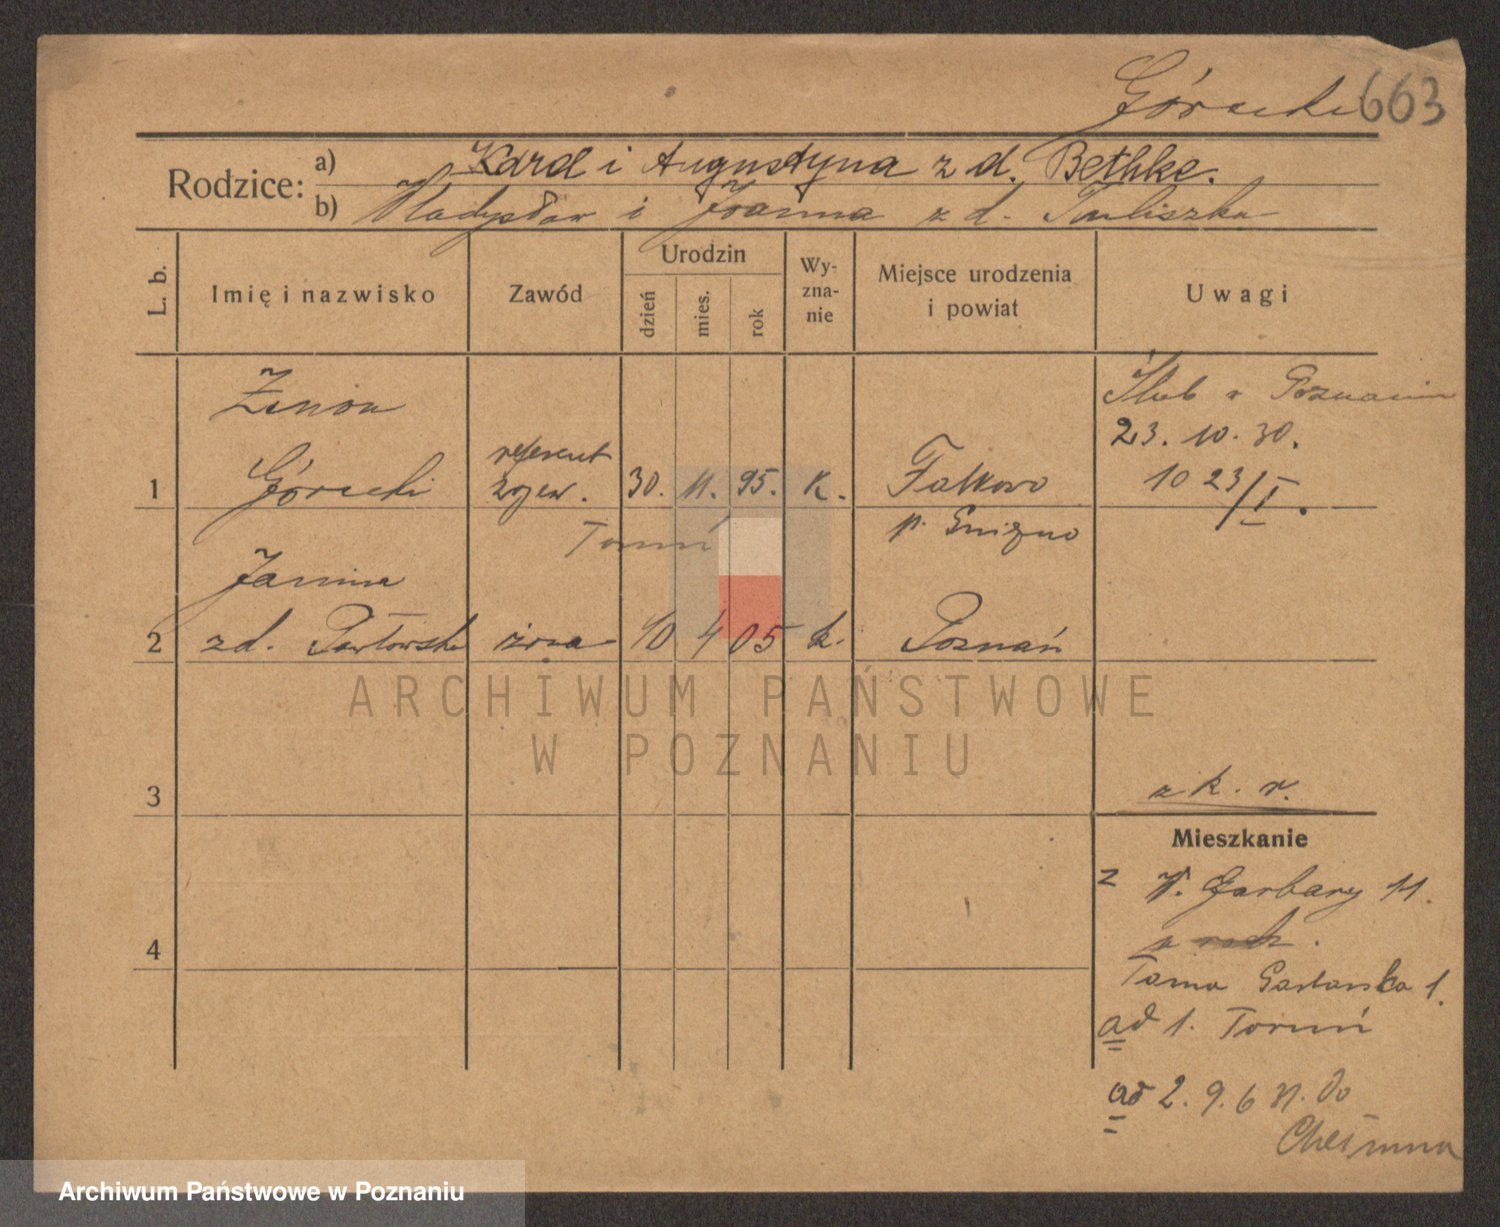 Górecki 663
Rodzice:
a) Karol i Augustyna z d. Bethke.
b) Władysław i Joanna z d. Tuliszka
L. b.
Imię i nazwisko
Zawód
Urodzin
dzień
mies.
rok
Wy-
zna-
nie
Miejsce urodzenia
i powiat
Uwagi
Zenon
Ślub w Poznaniu
23. 10. 30.
referent
1 Górecki wojew. 30. 11. 95. k. Falkowo 1023/I.
Toruń p. Gniezno
Janina
2 zd. Pawłowska żona 10 4 05 k. Poznań
ARCHIWUM PAŃSTWOWE
W POZNANIU
3
z k. r.
Mieszkanie
z W. Garbary 11.
4
Tama Garbarska 1.
ad 1. Toruń
ad 2. 9. 6 31. do
Chełmna
Archiwum Państwowe w Poznaniu